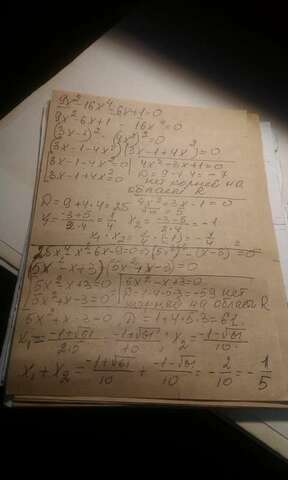 9x²-16x⁴-6x+1=0
9x²-6x+1-16x⁴=0
(3x-1)²-(4x²)²=0
(3x-1-4x²)(3x-1+4x²)=0
3x-1-4x²=0 | 4x²-3x+1=0
3x-1+4x²=0 | D=9-4·4=-7
нет корней на
области R
D=9+4·4=25 4x²+3x-1=0
√25=5
x₁=\frac{-3+5}{2·4}=\frac{1}{4} x₂=\frac{-3-5}{2·4}=-1
x₁·x₂=\frac{1}{4}·(-1)=-\frac{1}{4}
25x⁴-x²+6x-9=0
(5x²-x+3)(5x²+x-3)=0
5x²-x+3=0 | 5x²-x+3=0
5x²+x-3=0 | D=1-4·5·3=-59 нет
корней на области R
5x²+x-3=0 D=1+4·5·3=61
x₁=\frac{-1+√61}{2·5}=\frac{-1+√61}{10}; x₂=\frac{-1-√61}{10}
x₁+x₂=\frac{-1+√61}{10}+\frac{-1-√61}{10}=-\frac{2}{10}=-\frac{1}{5}